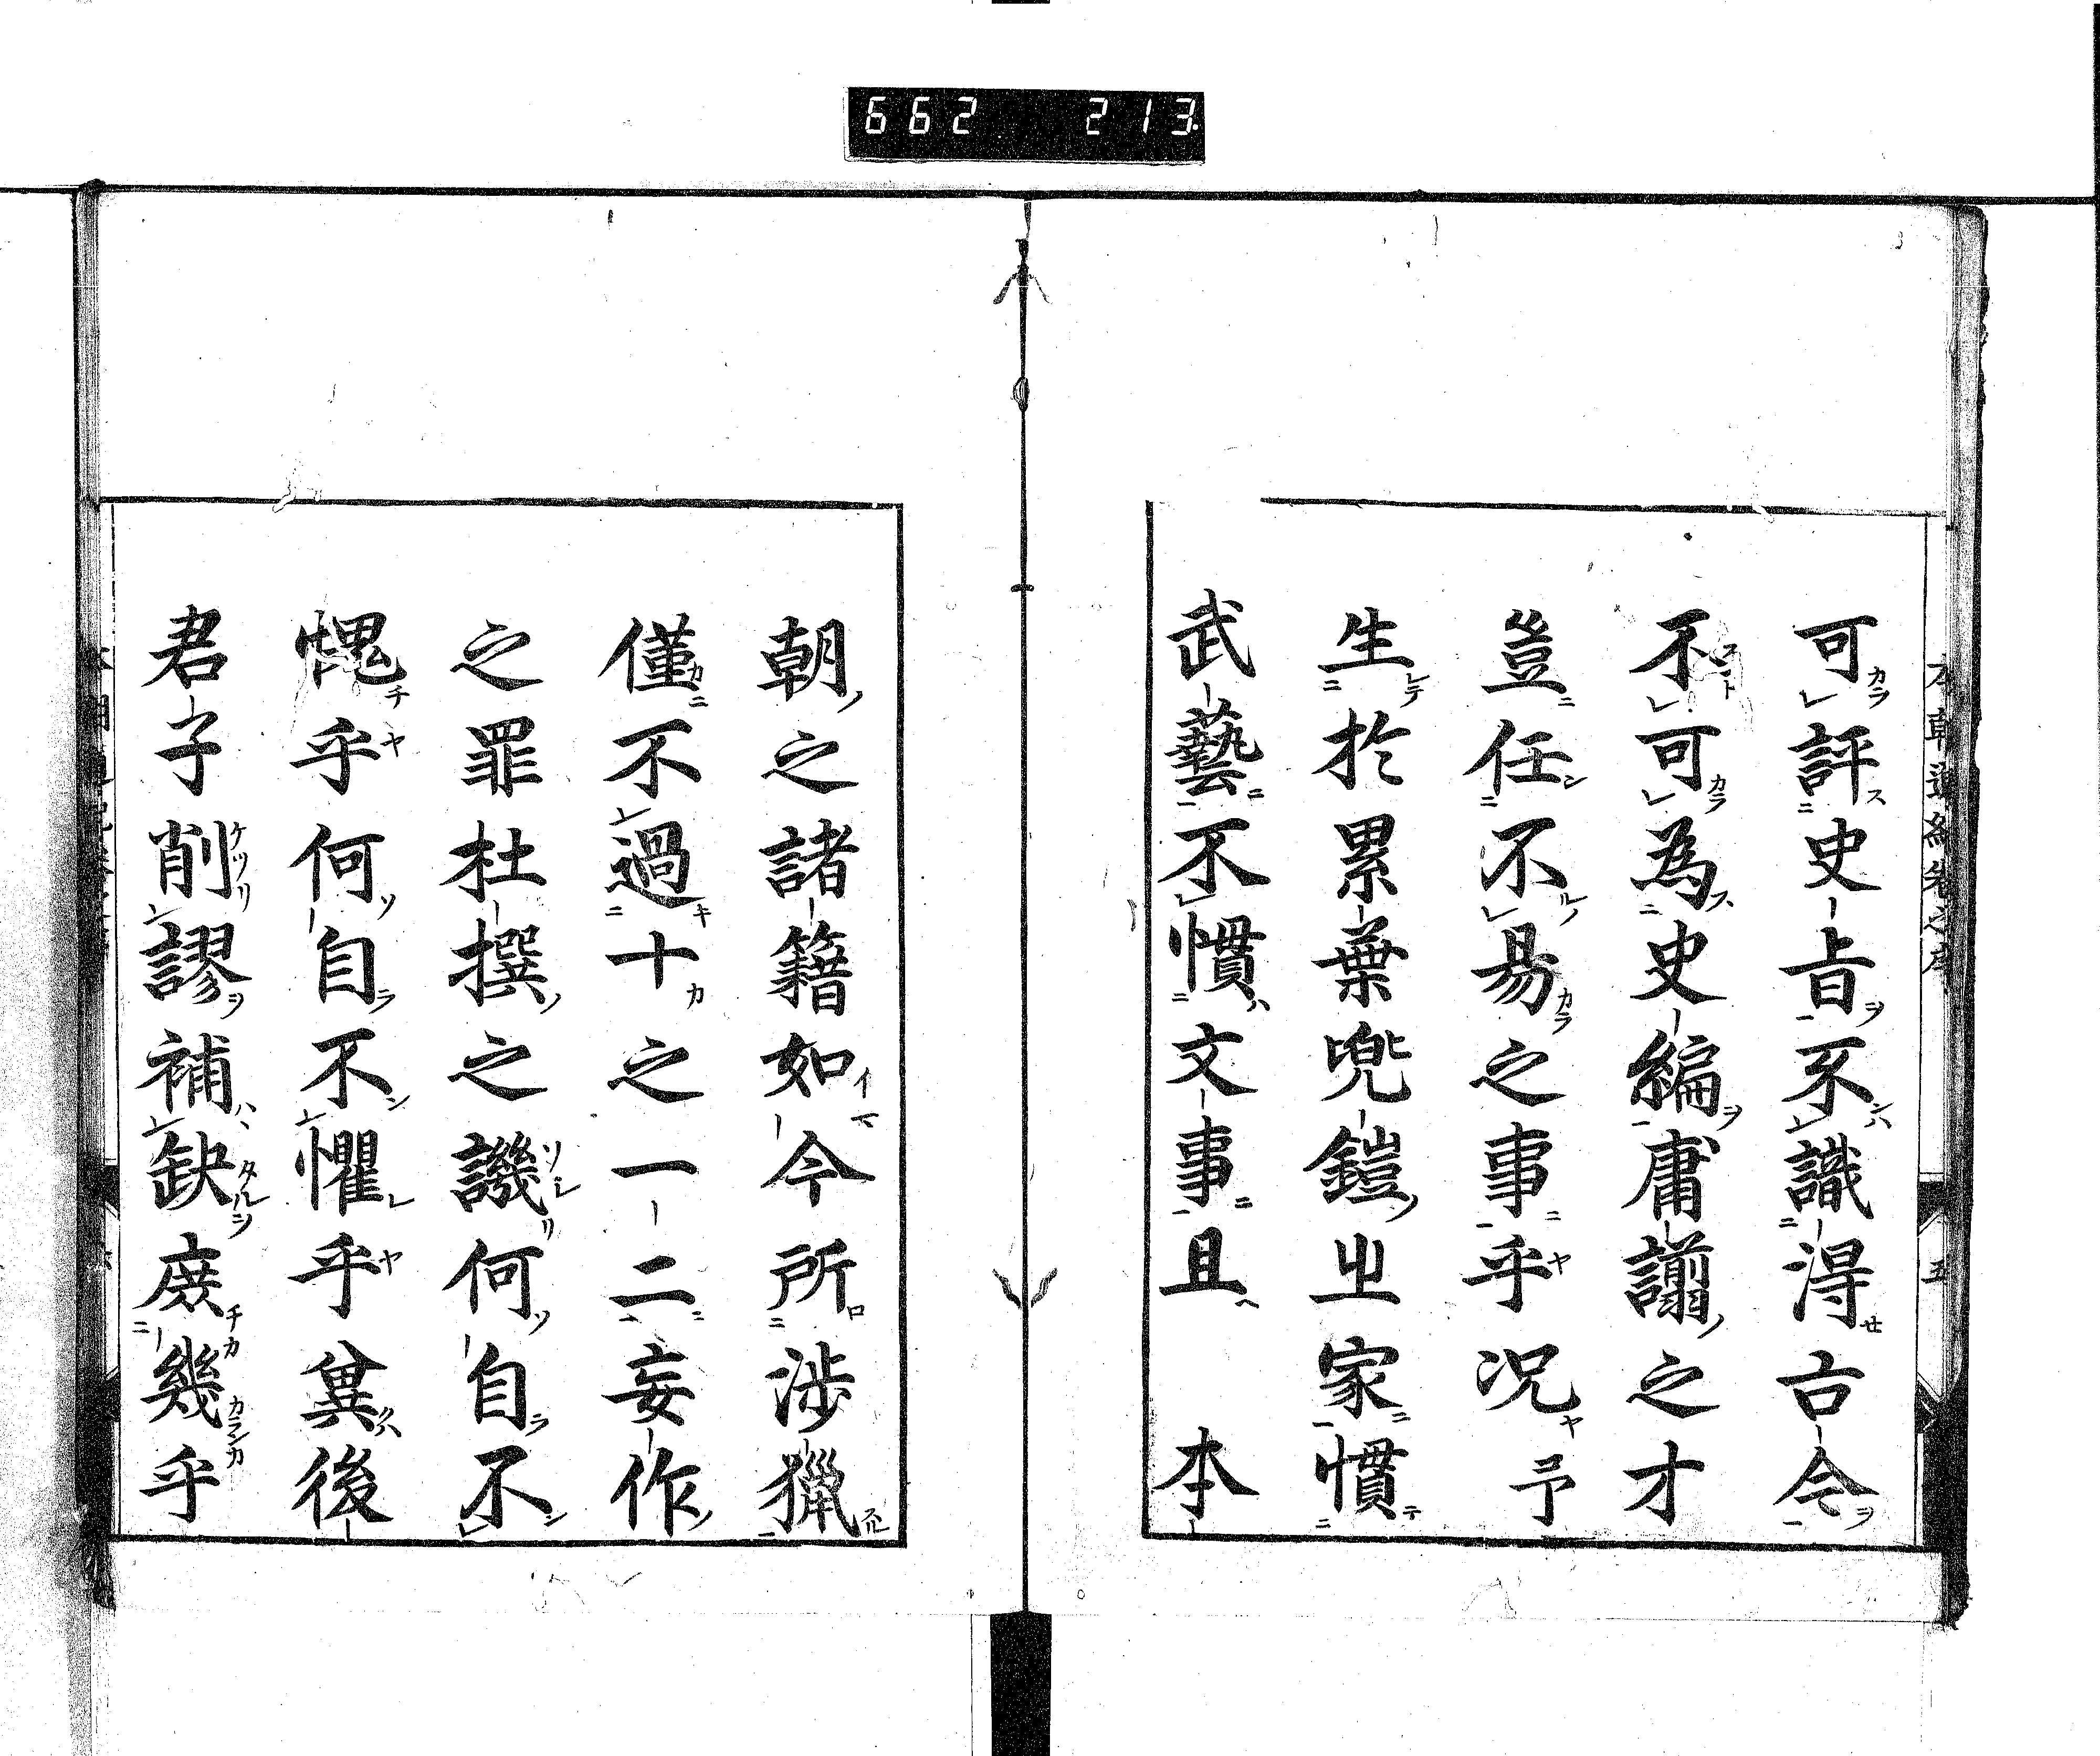 662 213
可評史旨不識淂古今
不可為史編庸謭之才
豈任不易之事乎况予
生於累葉兜鎧㞢家慣
武藝不慣文事且 本
朝之諸籍如今所涉獵
僅不過十之一二妄作
之罪杜撰之譏何自不
愧乎何自不懼乎兾後
君子削謬補缺庻幾乎